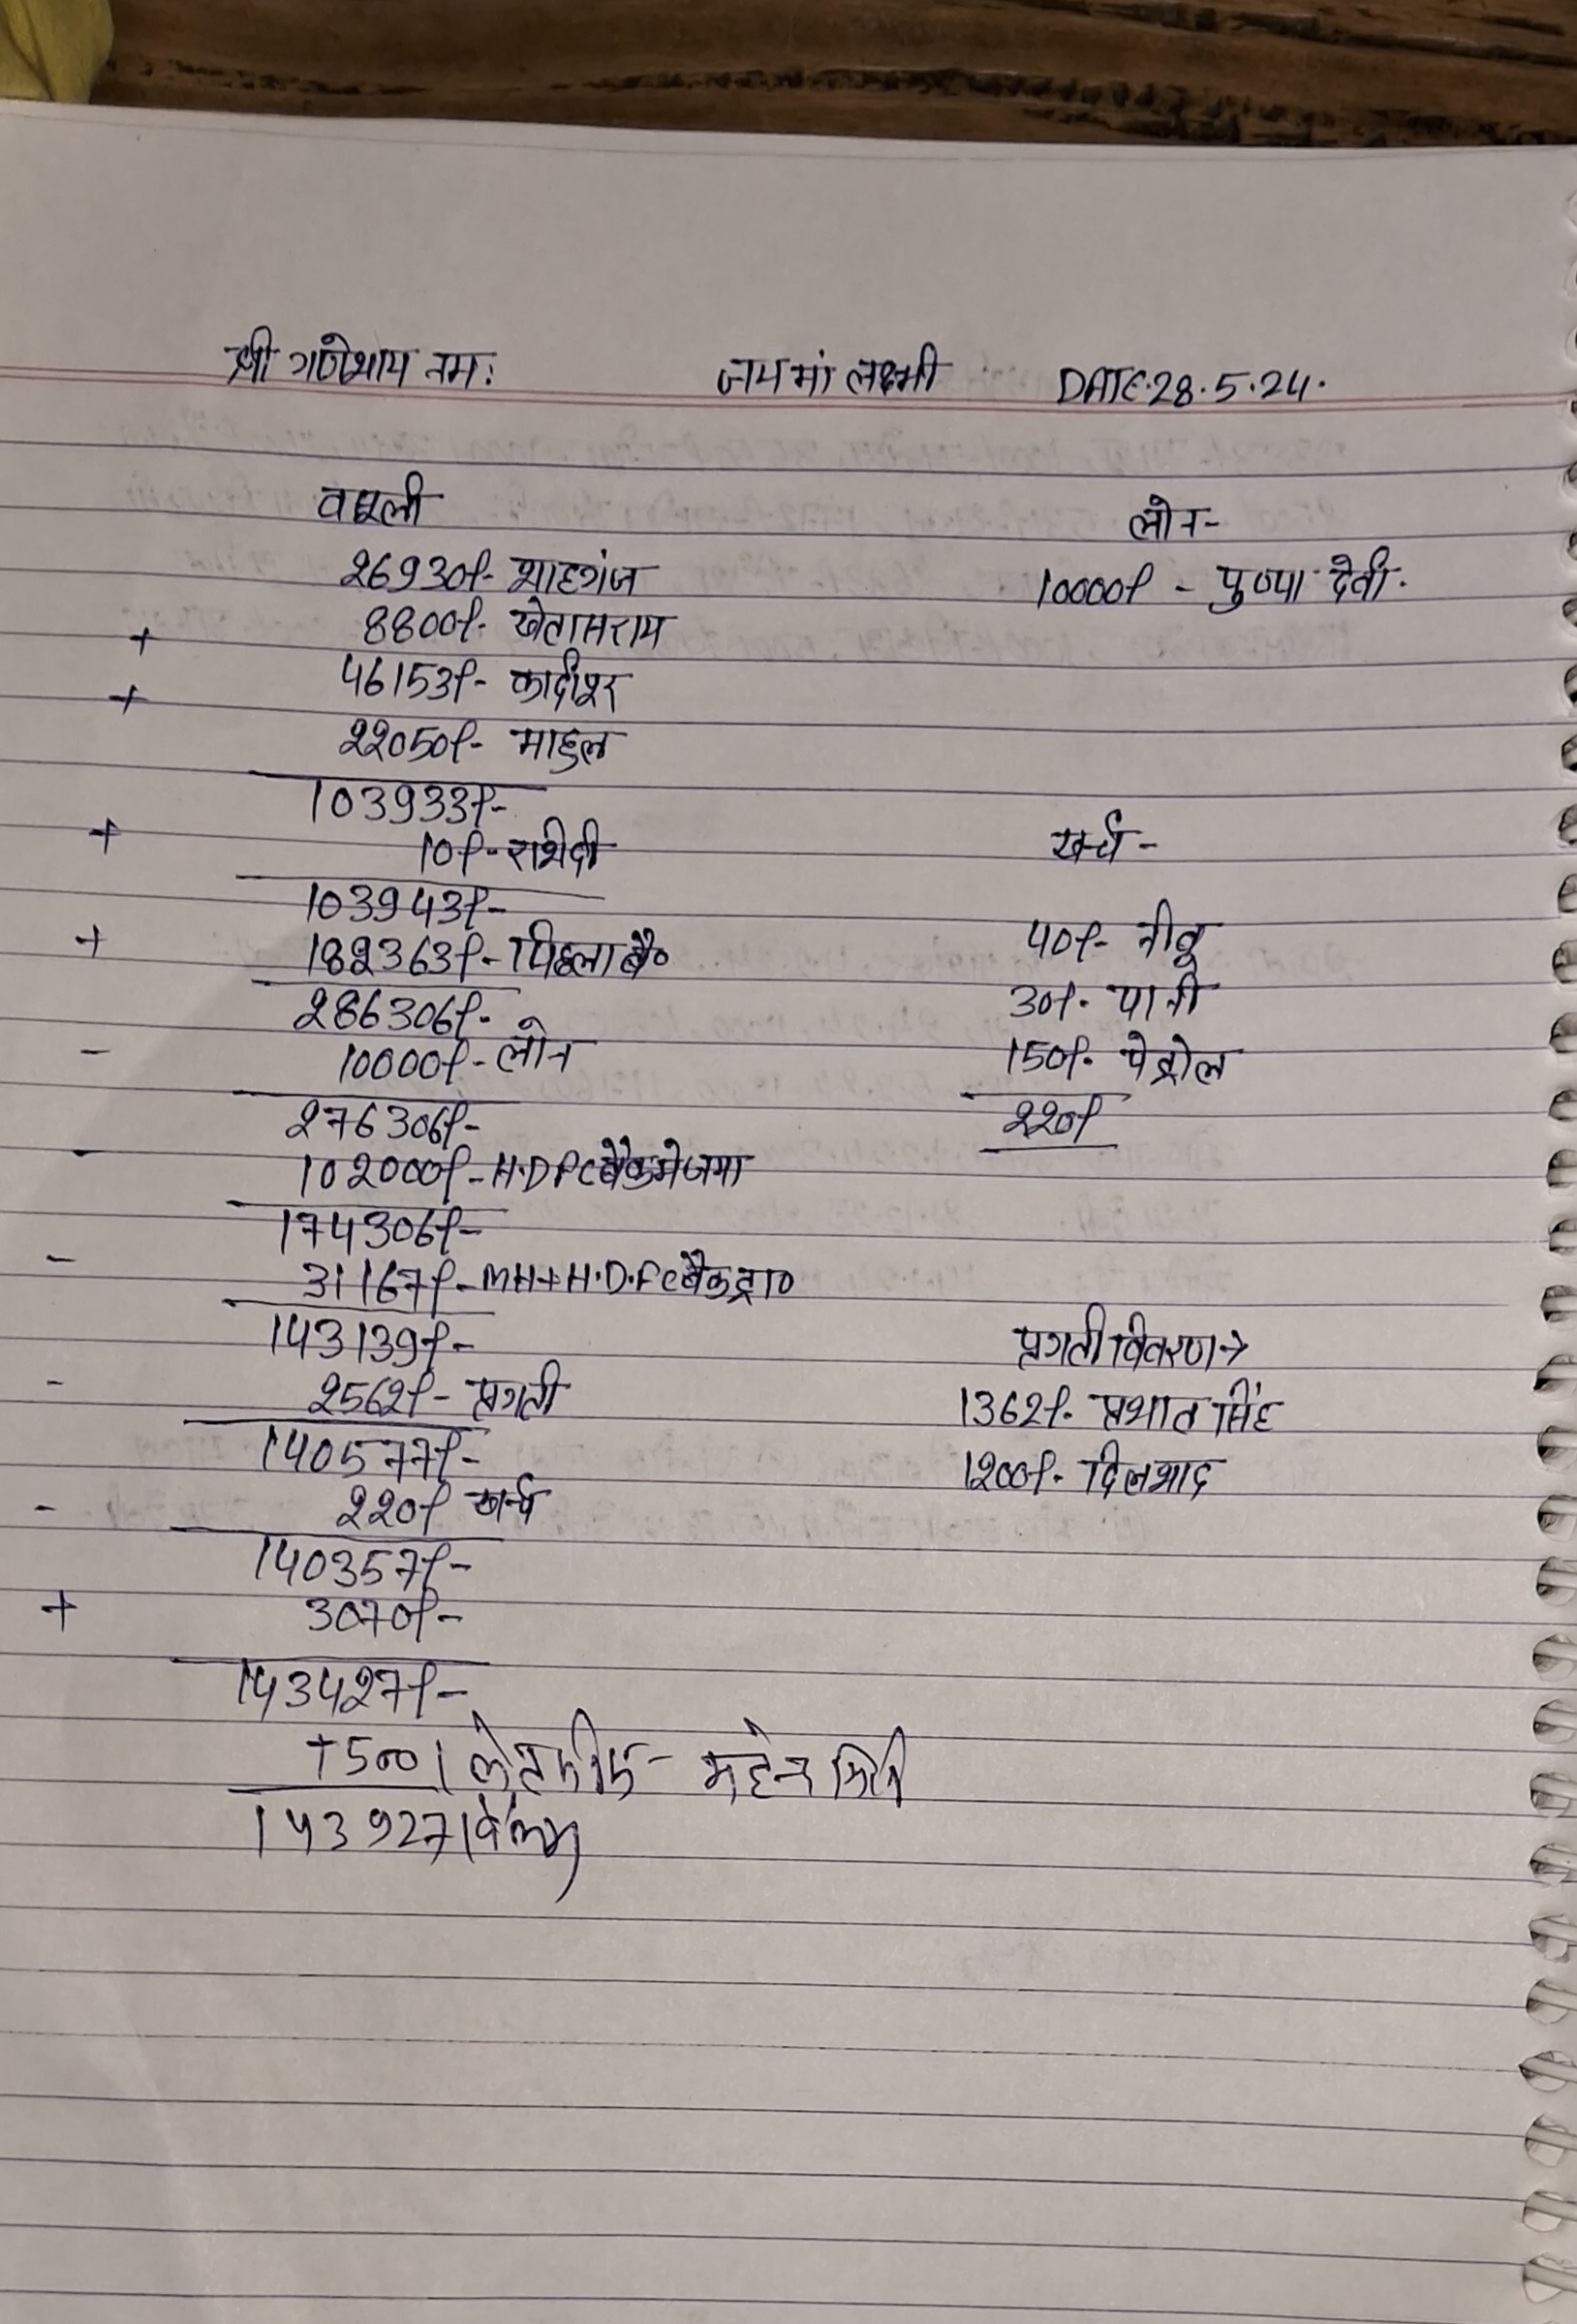 श्री गणेशाय नमः जय मां लक्ष्मी DATE.28.5.24.
वसूली
26930/- शाहगंज
+ 8800/- खेतासराय
+ 46153/- कादीपुर
22050/- माहुल
103933/-
+ 10/- रशीदी
103943/-
+ 182363/- पिछला बै०
286306/-
- 10000/- लोन
276306/-
- 102000/- H.D.F.C बैंक मे जमा
174306/-
- 31167/- MH+H.D.F.C बैंक ट्रा०
143139/-
- 2562/- प्रगती
140577/-
- 220/ खर्च
140357/-
+ 3070/-
143427/-
+500/
143927/
लोन-
10000/ - पुष्पा देवी.
खर्च -
40/- नीबू
30/- पानी
150/- पेट्रोल
220/
प्रगती विवरण→
1362/- प्रभात सिंह
1200/- दिलशाद